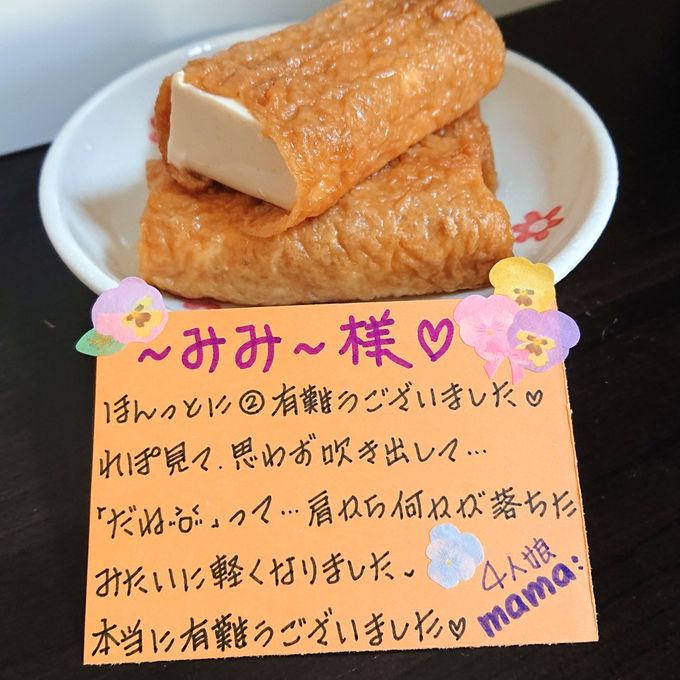 ~みみ~様♡
ほんっとに②有難うございました♡
れぽ見て、思わず吹き出して…
「だね」って…肩から何かが落ちた
みたいに軽くなりました
本当に有難うございました♡
4人娘
mama: